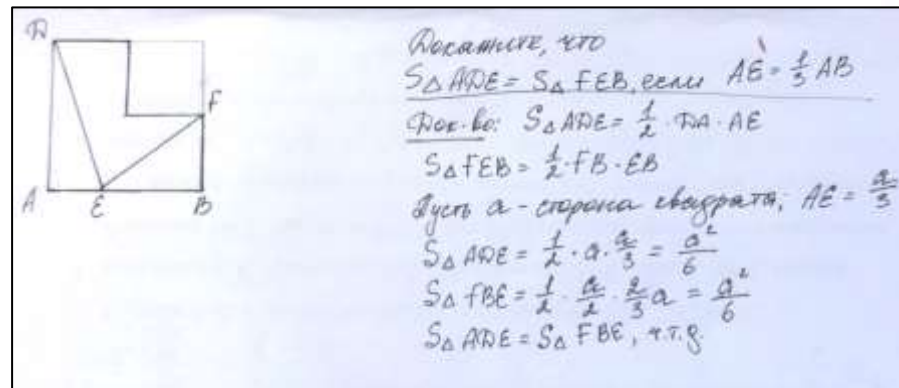 D
F
A
E
B
Докажите, что
S△ADE = S△FEB, если AE = 1/3 AB
Док-во: S△ADE = 1/2 · DA · AE
S△FEB = 1/2 · FB · EB
Пусть a - сторона квадрата; AE = a/3
S△ADE = 1/2 · a · a/3 = a²/6
S△FBE = 1/2 · a/2 · 2/3 a = a²/6
S△ADE = S△FBE, ч.т.д.